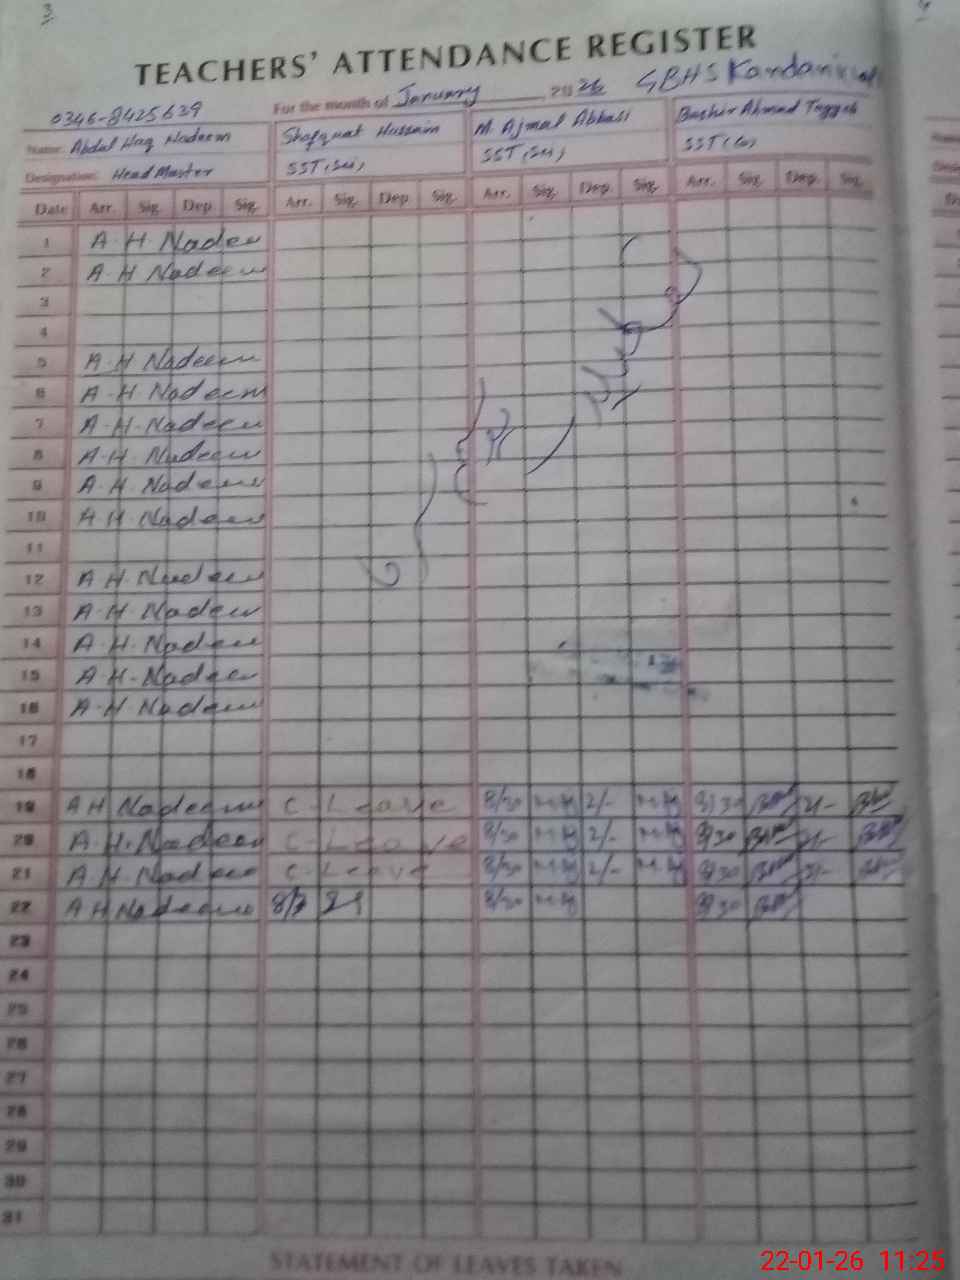 3
TEACHERS' ATTENDANCE REGISTER
For the month of January, 2026 GBHS
0346-8425639
Name: Abdul Haq Nadeem Shafquat Hussain M. Ajmal Abbasi Bashir Ahmad
Designation: Head Master SST (Sci) SST (Sci) SST (G)
Date Arr. Sig. Dep. Sig. Arr. Sig. Dep. Sig. Arr. Sig. Dep. Sig. Arr. Sig. Dep. Sig.
1 A.H. Nadeem
2 A.H Nadeem
3
4
5 A.H Nadeem
6 A.H. Nadeem
7 A.H. Nadeem
8 A.H. Nadeem
9 A.H. Nadeem
10 A.H. Nadeem
11
12 A H. Nadeem
13 A.H. Nadeem
14 A.H. Nadeem
15 A.H. Nadeem
16 A.H. Nadeem
17
18
19 A H Nadeem C-Leave 8/30 2/- 8/30 2/-
20 A.H. Nadeem C-Leave 8/30 2/- 8/30 2/-
21 A H Nadeem C-Leave 8/30 2/- 8/30 2/-
22 A H Nadeem 8/30 8/30
23
24
25
26
27
28
29
30
31
STATEMENT OF LEAVES TAKEN
22-01-26 11:25